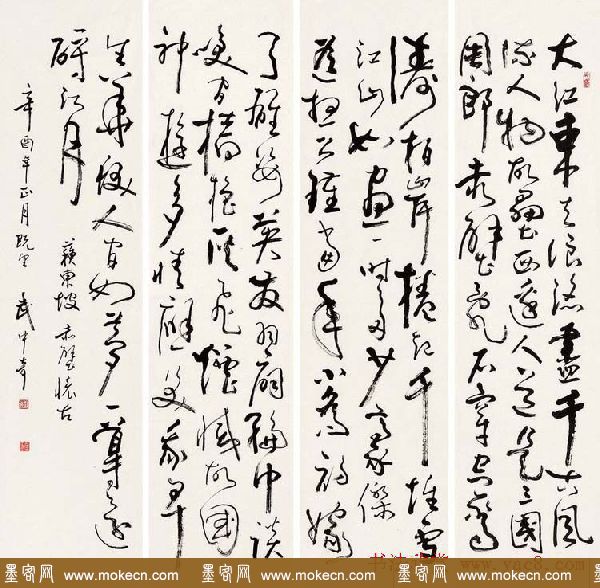 大江東去浪淘盡千古風
流人物故壘西邊人道是三國
周郎赤壁亂石穿空驚
濤拍岸捲起千堆雪
江山如畫一時多少豪傑
遙想公瑾當年小喬初嫁
了雄姿英發羽扇綸巾談
笑間檣櫓灰飛煙滅故國
神遊多情應笑我早
生華髮人間如夢一尊還
酹江月
蘇東坡 赤壁懷古
辛酉年正月既望 武中奇
www.yac8.com
墨客网 www.mokecn.com 墨客网 www.mokecn.com 墨客网 www.mokecn.com 墨客网 www.mokecn.com